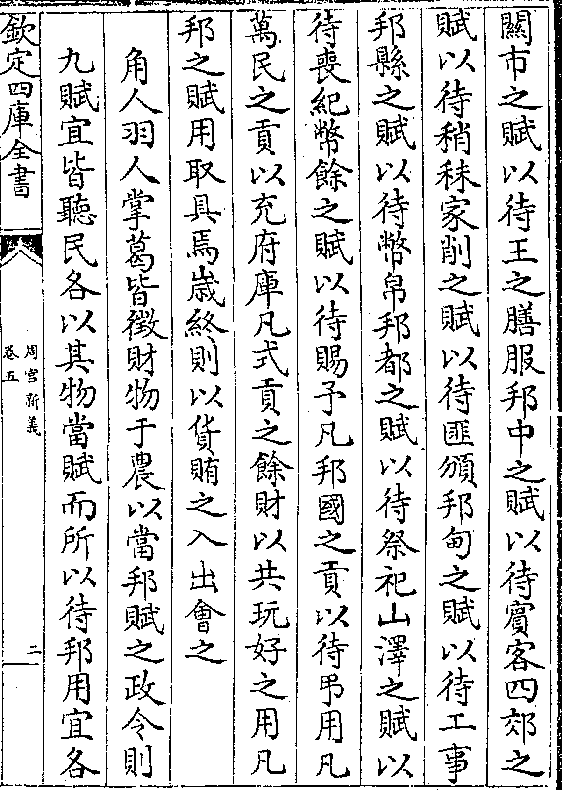 關市之賦以待王之膳服邦中之賦以待賔客四郊之
賦以待稍秣家削之賦以待匪頒邦甸之賦以待工事
邦縣之賦以待幣帛邦都之賦以待祭祀山澤之賦以
待喪紀幣餘之賦以待賜予凡邦國之貢以待弔用凡
萬民之貢以充府庫凡式貢之餘財以共玩好之用凡
邦之賦用取具焉歲終則以貨賄之入出會之
角人羽人掌葛皆徵財物于農以當邦賦之政令則
九賦宜皆聽民各以其物當賦而所以待邦用宜各
欽定四庫全書
周官新義
卷五
二